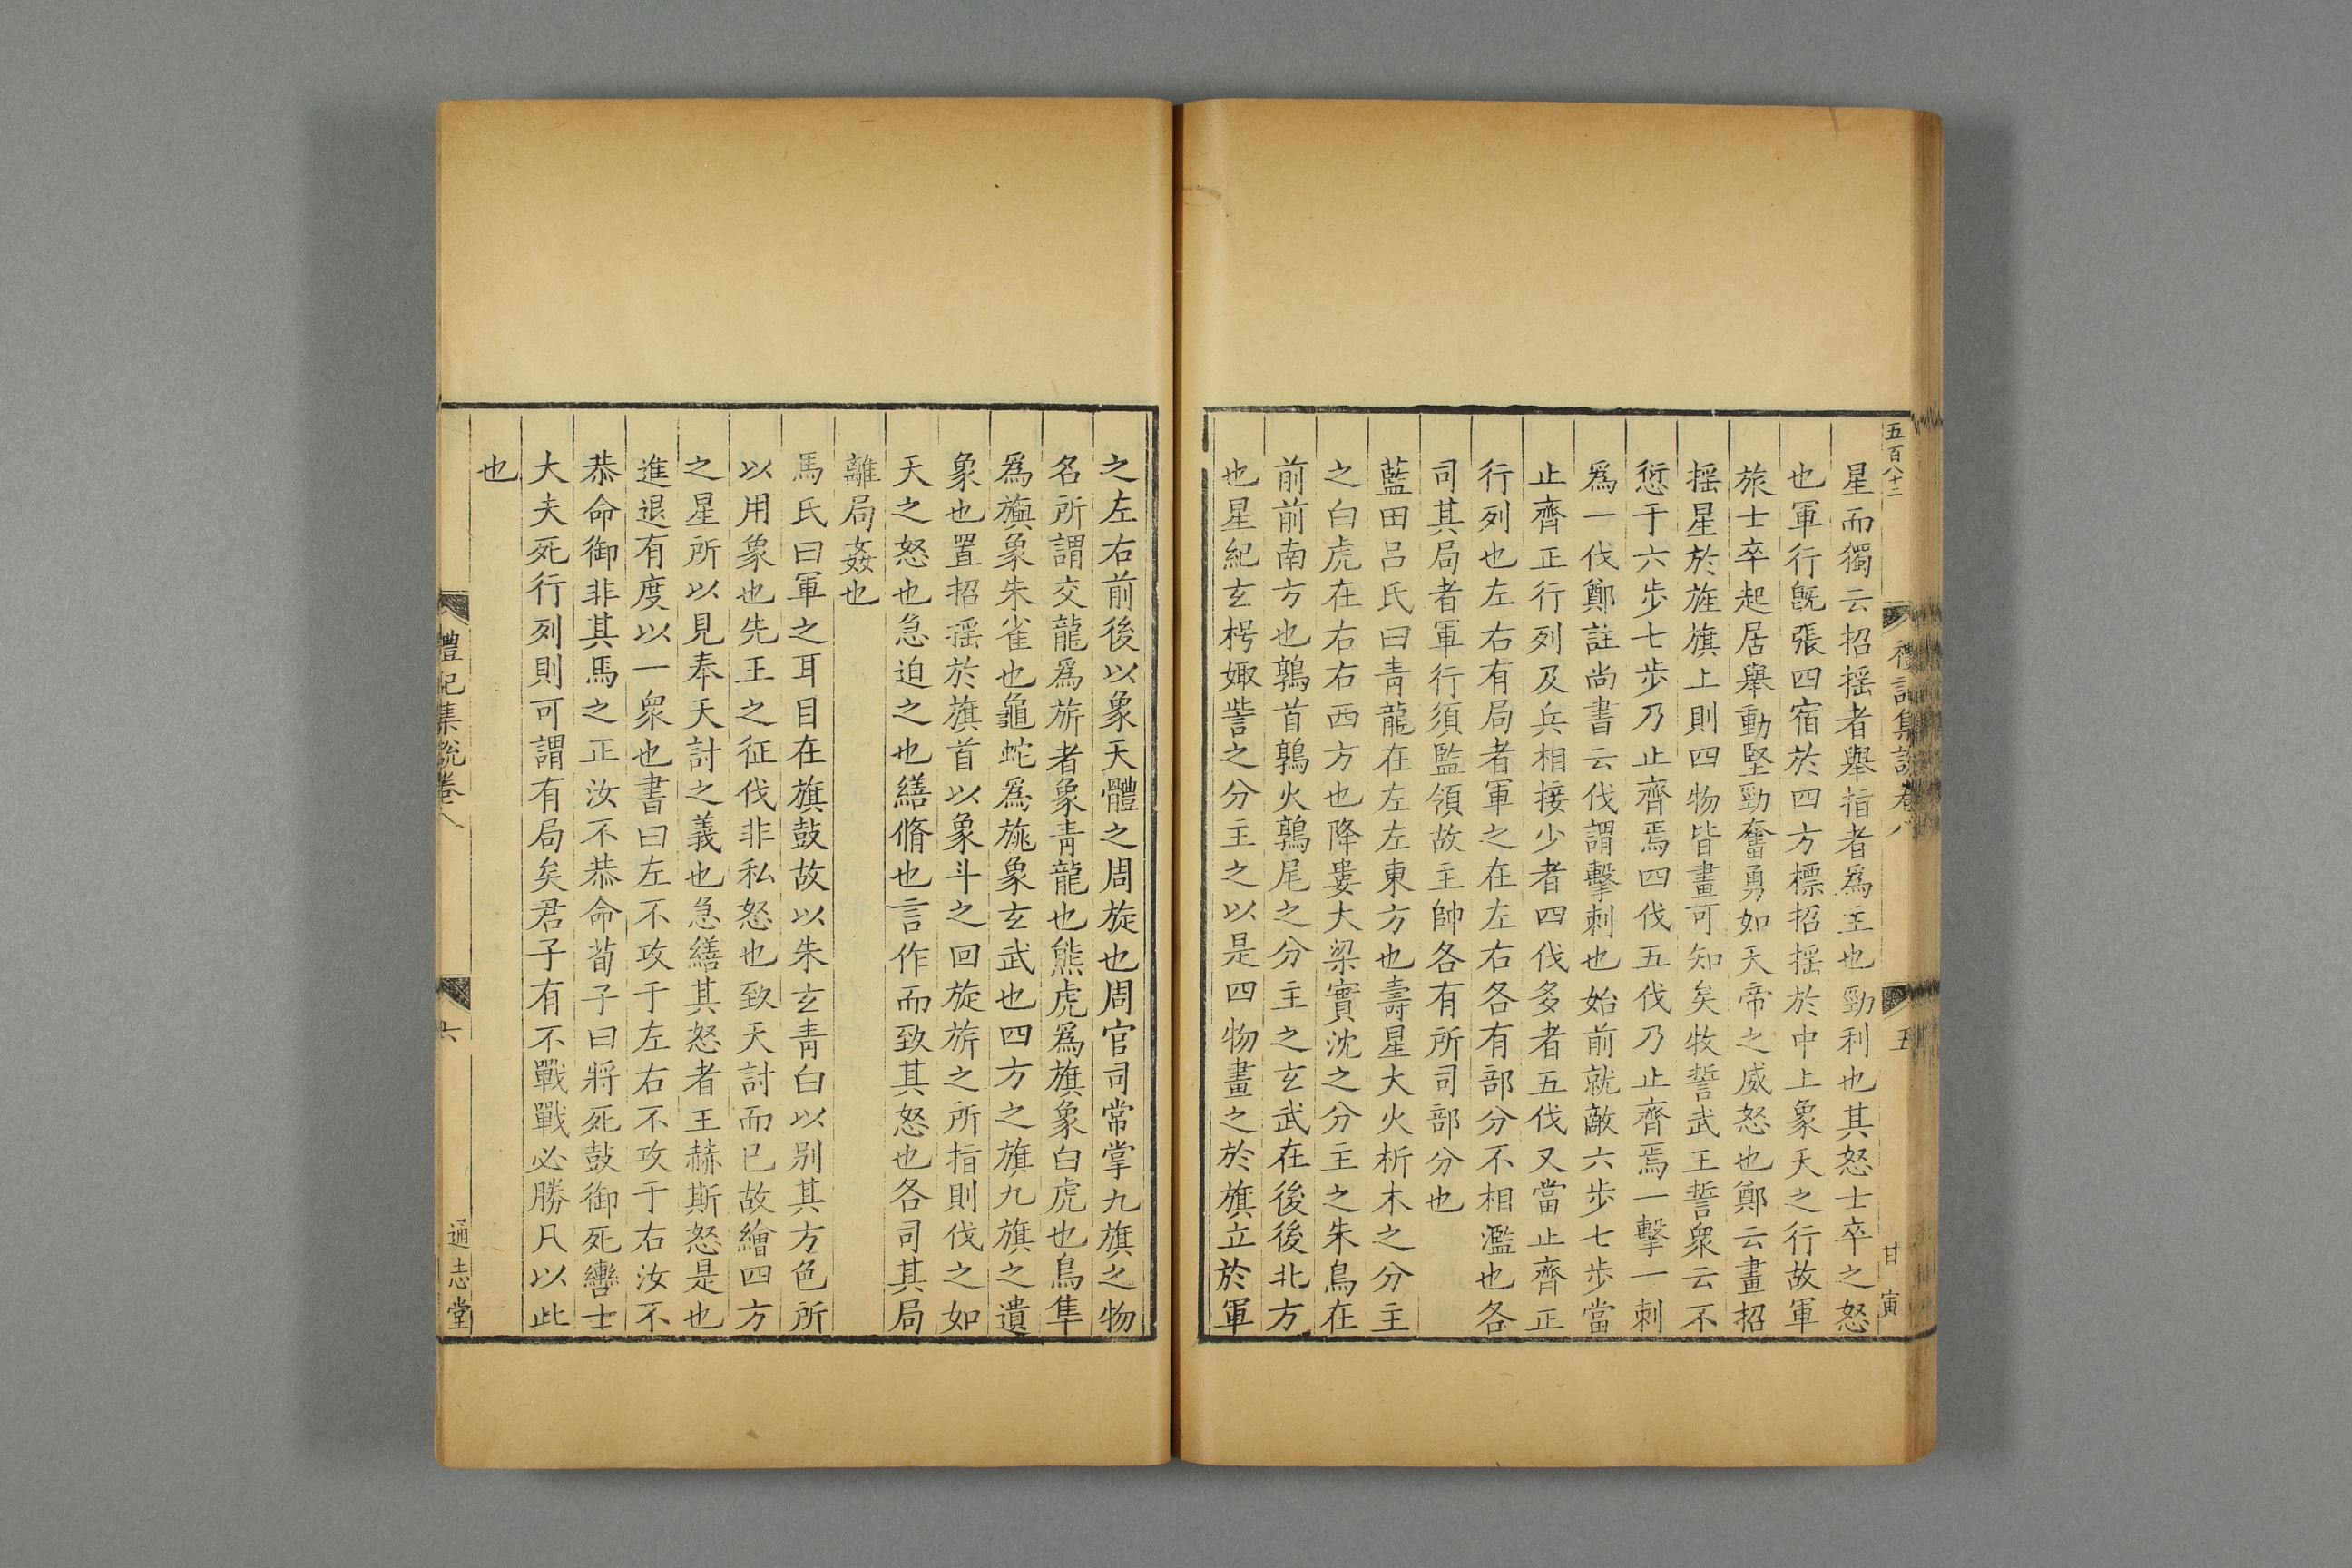 五百八十二
禮記集說卷八
五
甘寅
星而獨云招搖者舉指者爲主也勁利也其怒士卒之怒
也軍行旣張四宿於四方標招搖於中上象天之行故軍
旅士卒起居舉動堅勁奮勇如天帝之威怒也鄭云畫招
搖星於旌旗上則四物皆畫可知矣牧誓武王誓衆云不
愆于六步七步乃止齊焉四伐五伐乃止齊焉一擊一刺
爲一伐鄭註尚書云伐謂擊刺也始前就敵六步七步當
止齊正行列及兵相接少者四伐多者五伐又當止齊正
行列也左右有局者軍之在左右各有部分不相濫也各
司其局者軍行須監領故主帥各有所司部分也
藍田呂氏曰青龍在左左東方也壽星大火析木之分主
之白虎在右右西方也降婁大梁實沈之分主之朱鳥在
前前南方也鶉首鶉火鶉尾之分主之玄武在後後北方
也星紀玄枵娵訾之分主之以是四物畫之於旗立於軍
之左右前後以象天體之周旋也周官司常掌九旗之物
名所謂交龍爲旂者象青龍也熊虎爲旗象白虎也鳥隼
爲旟象朱雀也龜蛇爲旐象玄武也四方之旗九旗之遺
象也置招搖於旗首以象斗之回旋旂之所指則伐之如
天之怒也急迫之也繕脩也言作而致其怒也各司其局
離局姦也
馬氏曰軍之耳目在旗鼓故以朱玄青白以別其方色所
以用象也先王之征伐非私怒也致天討而已故繪四方
之星所以見奉天討之義也急繕其怒者王赫斯怒是也
進退有度以一衆也書曰左不攻于左右不攻于右汝不
恭命御非其馬之正汝不恭命荀子曰將死鼓御死轡士
大夫死行列則可謂有局矣君子有不戰戰必勝凡以此
也
禮記集說卷八
六
通志堂